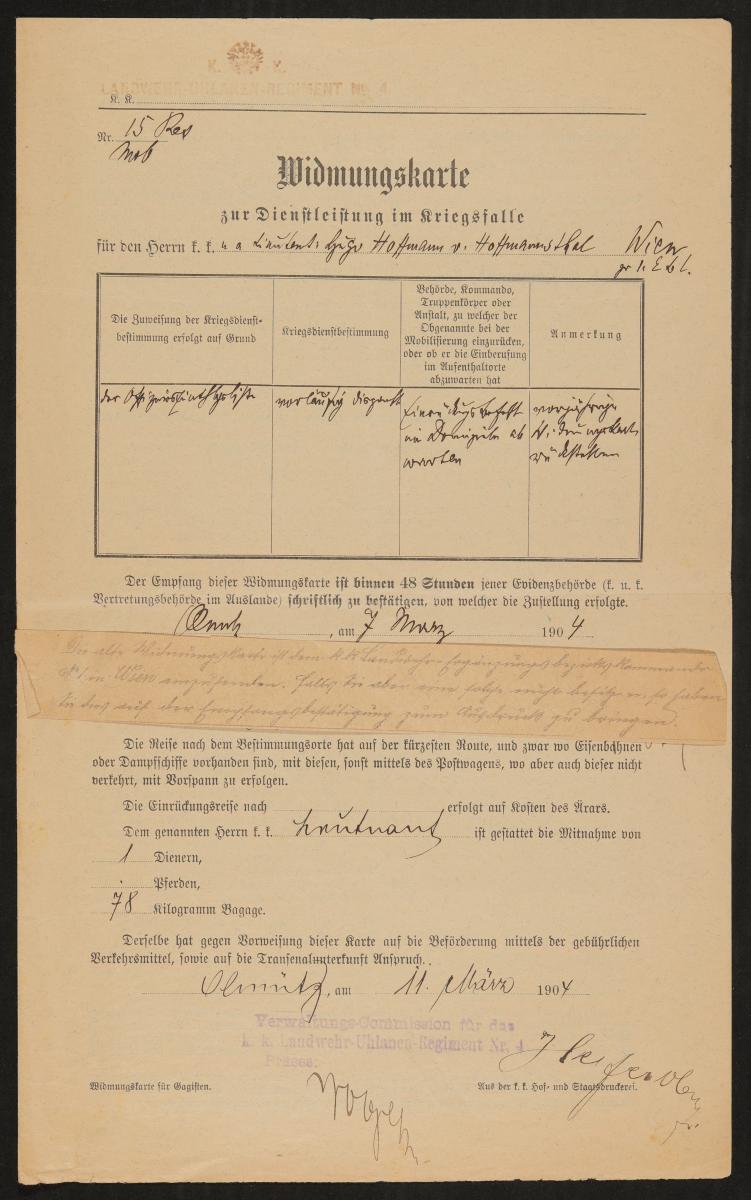 K. K.
LANDWEHR-UHLANEN-REGIMENT No. 4
K. K.
Nr. 15 Res
Mob
Widmungskarte
zur Dienstleistung im Kriegsfalle
für den Herrn k. k. Lieutenant: Hugo Hoffmann v. Hoffmannsthal Wien
Die Zuweisung der Kriegsdienst-
bestimmung erfolgt auf Grund
Kriegsdienstbestimmung
Behörde, Kommando,
Truppenkörper oder
Anstalt, zu welcher der
Obgenannte bei der
Mobilisierung einzurücken,
oder ob er die Einberufung
im Aufenthaltorte
abzuwarten hat
Anmerkung
der
vorläufig
im Domizile ab
warten
vorjährige
Widmungskarte
Der Empfang dieser Widmungskarte ist binnen 48 Stunden jener Evidenzbehörde (k. u. k.
Vertretungsbehörde im Auslande) schriftlich zu bestätigen, von welcher die Zustellung erfolgte.
Olmütz, am 7 März 1904
Die alte Widmungskarte ist dem k.k. Landwehr-Ergänzungsbezirkskommando
N° 1 in Wien einzusenden. Falls Sie aber eine solche nicht besitzen, so haben
Sie dies auf der Empfangsbestätigung zum Ausdruck zu bringen.
Die Reise nach dem Bestimmungsorte hat auf der kürzesten Route, und zwar wo Eisenbahnen
oder Dampfschiffe vorhanden sind, mit diesen, sonst mittels des Postwagens, wo aber auch dieser nicht
verkehrt, mit Vorspann zu erfolgen.
Die Einrückungsreise nach erfolgt auf Kosten des Ärars.
Dem genannten Herrn k. k. Leutnant ist gestattet die Mitnahme von
1 Dienern,
. Pferden,
78 Kilogramm Bagage.
Derselbe hat gegen Vorweisung dieser Karte auf die Beförderung mittels der gebührlichen
Verkehrsmittel, sowie auf die Transenalunterkunft Anspruch.
Olmütz, am 11. März 1904
Verwaltungs-Commission für das
k. k. Landwehr-Uhlanen-Regiment Nr. 4
Praese:
Widmungskarte für Gagisten.
Aus der k. k. Hof- und Staatsdruckerei.